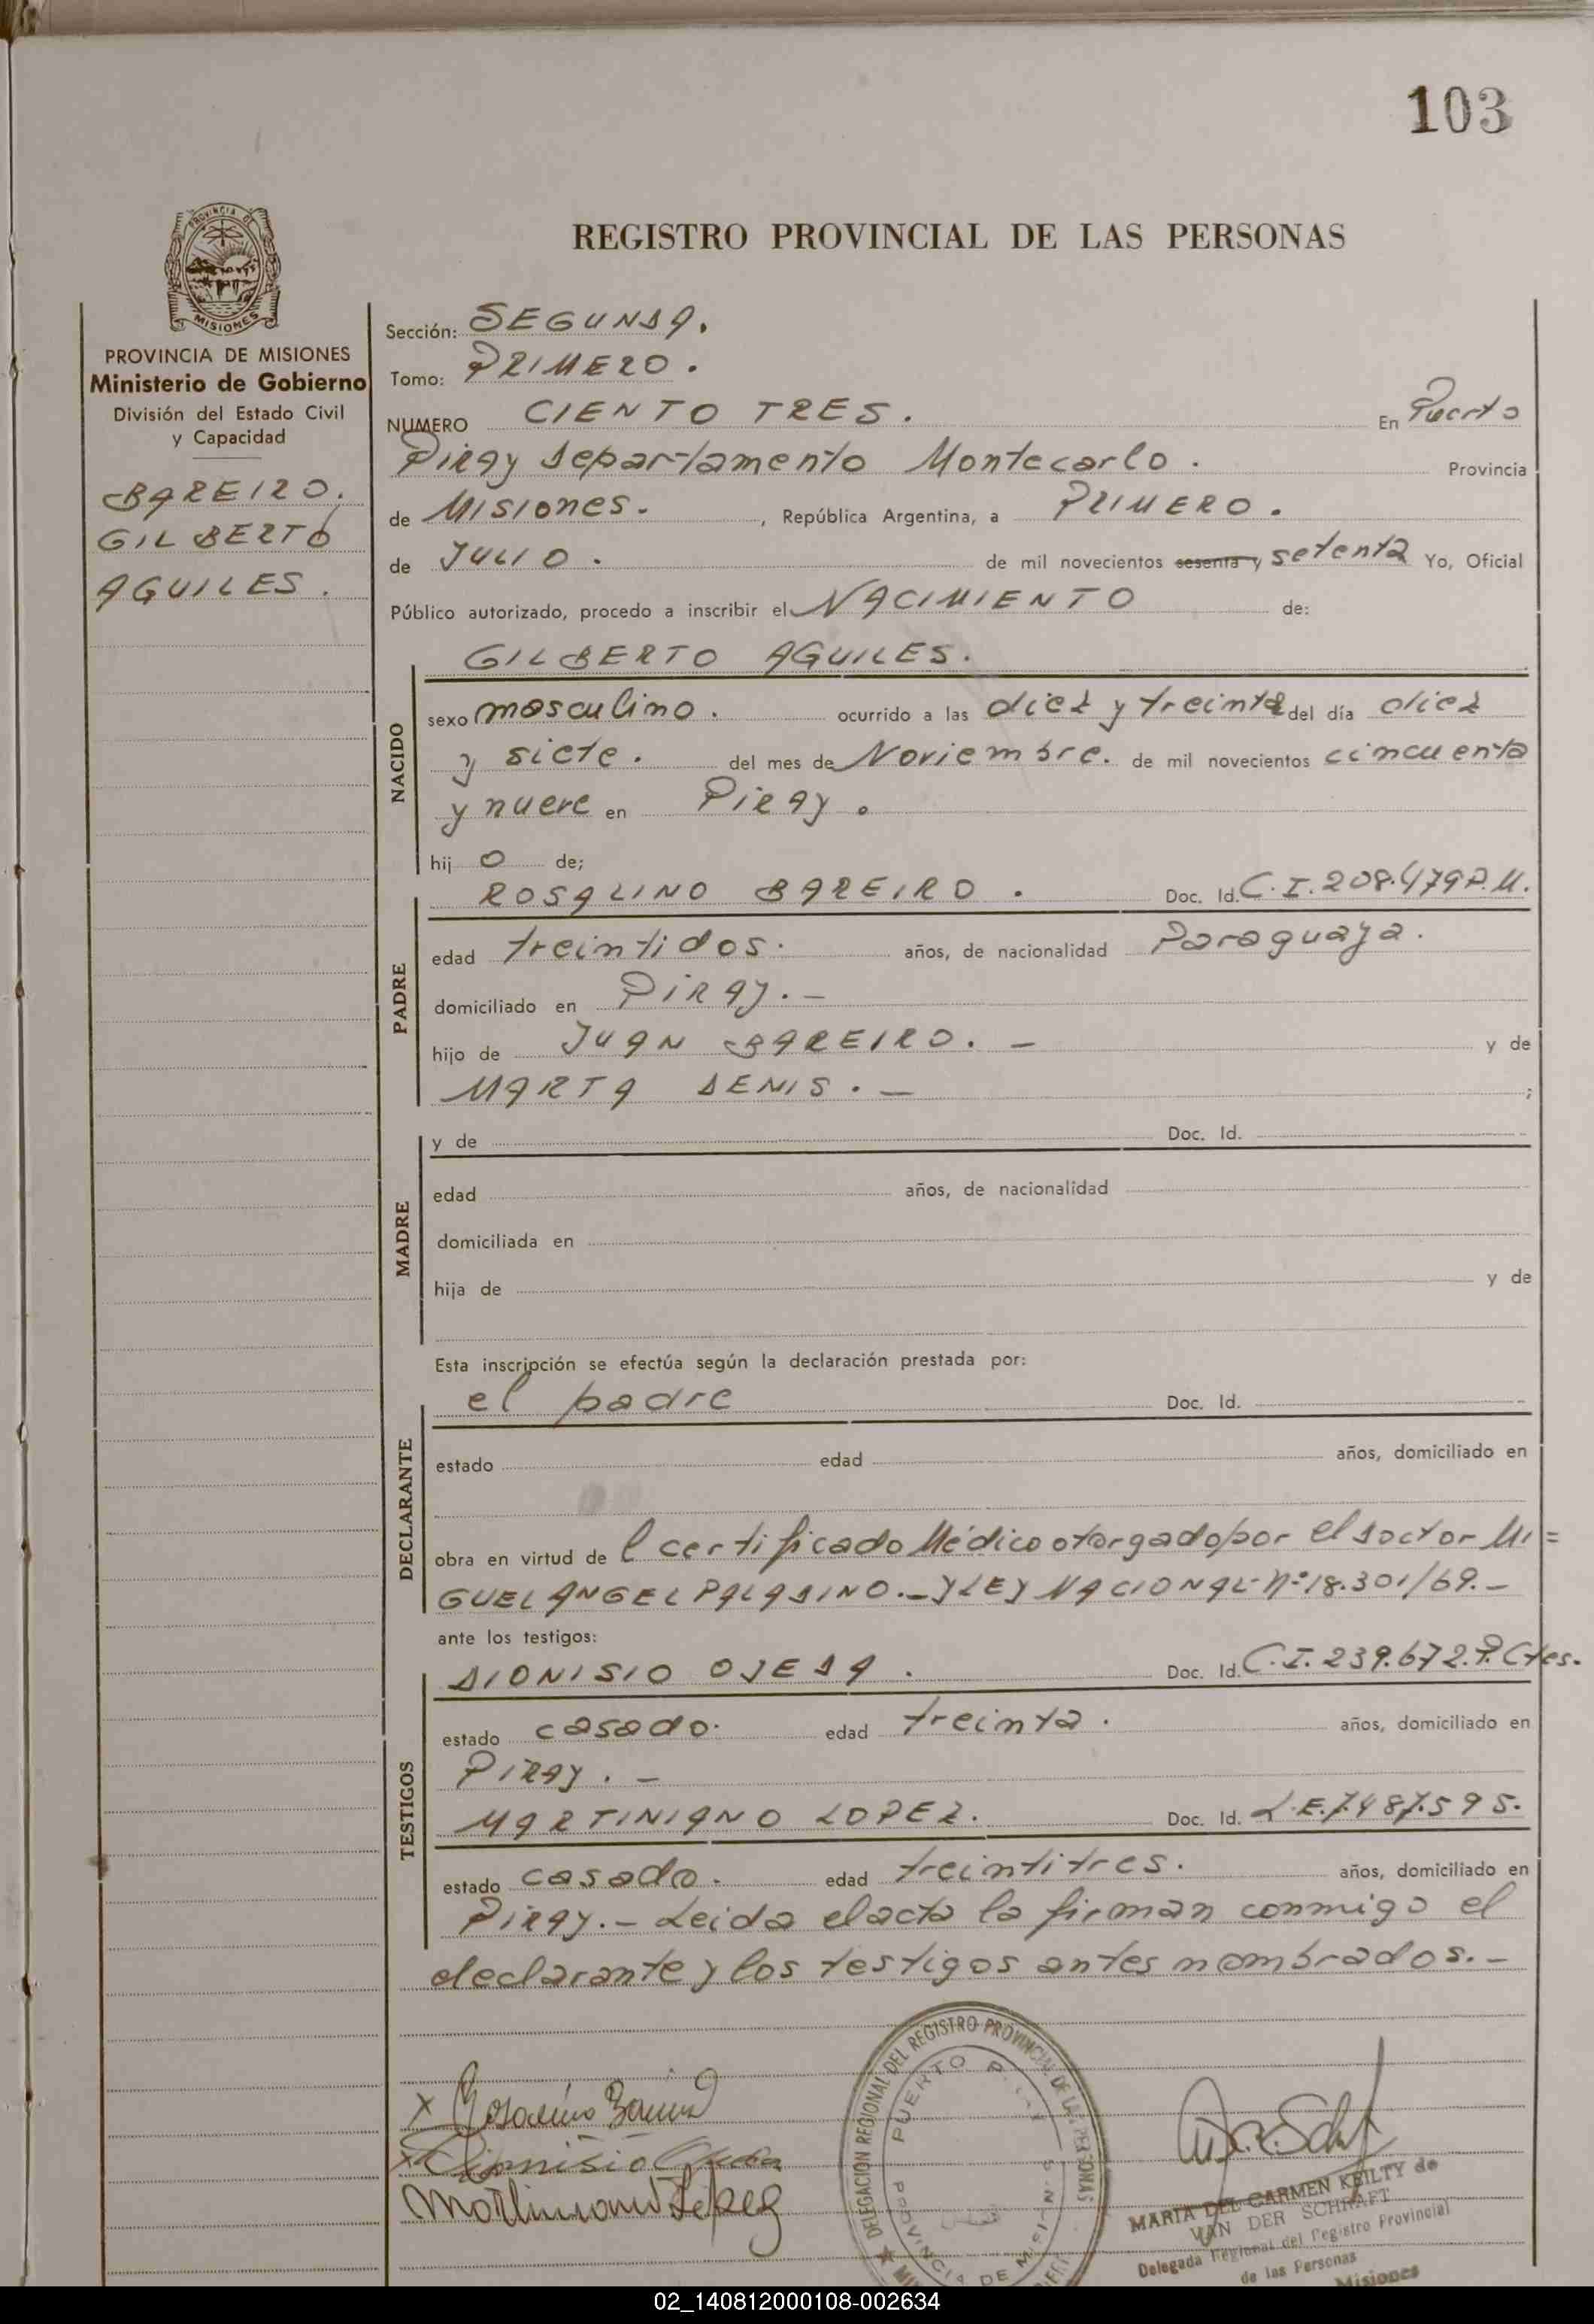 103
PROVINCIA DE
MISIONES
PROVINCIA DE MISIONES
Ministerio de Gobierno
División del Estado Civil
y Capacidad
BAREIRO.
GILBERTO
AGUILES.
REGISTRO PROVINCIAL DE LAS PERSONAS
Sección: SEGUNDA.
Tomo: PRIMERO.
NUMERO CIENTO TRES. En Puerto
Piray departamento Montecarlo. Provincia
de Misiones. , República Argentina, a PRIMERO.
de JULIO. de mil novecientos sesenta y setenta Yo, Oficial
Público autorizado, procedo a inscribir el NACIMIENTO de:
GILBERTO AGUILES.
NACIDO
sexo masculino. ocurrido a las diez y treinta del día diez
y siete. del mes de Noviembre. de mil novecientos cincuenta
y nueve en Piray.
hij o de;
ROSALINO BAREIRO. Doc. Id. C.I. 208.479 P.M.
PADRE
edad treintidos. años, de nacionalidad Paraguaya.
domiciliado en Piray.-
hijo de JUAN BAREIRO. - y de
MARTA DENIS. - ;
MADRE
y de Doc. Id.
edad años, de nacionalidad
domiciliada en
hija de y de
Esta inscripción se efectúa según la declaración prestada por:
el padre Doc. Id.
DECLARANTE
estado edad años, domiciliado en
obra en virtud de l certificado Médico otorgado por el doctor MI=
GUEL ANGEL PALADINO.- Y LEY NACIONAL Nº 18.301/69.-
ante los testigos:
DIONISIO OJEDA. Doc. Id. C.I. 239.672.P.Ctes.
TESTIGOS
estado casado. edad treinta. años, domiciliado en
Piray. -
MARTINIANO LOPEZ. Doc. Id. L.E.7.487.595.
estado casado. edad treintitres. años, domiciliado en
Piray.- Leida el acta la firman conmigo el
declarante y los testigos antes nombrados.-
DELEGACION REGIONAL DEL REGISTRO PROVINCIAL DE LAS PERSONAS
PUERTO
PROVINCIA DE MISIONES
Martiniano Lopez
MARIA DEL CARMEN KEILTY de
VAN DER SCHRAFT
Delegada Regional del Registro Provincial
de las Personas
Misiones
02_140812000108-002634